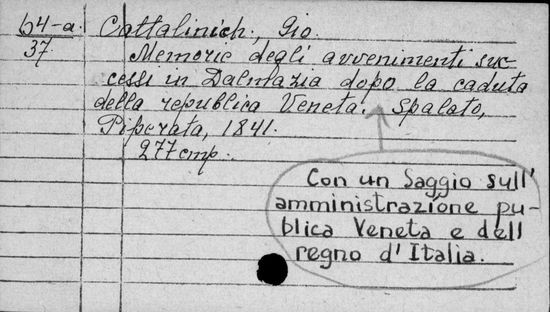 b4-a
37
Cattalinich, Gio.
Memorie degli avvenimenti suc-
cessi in Dalmazia dopo la caduta
della republica Veneta. Spalato,
Piperata, 1841.
277 стр.
Con un Saggio sull'
amministrazione pu-
blica Veneta e dell
regno d'Italia.